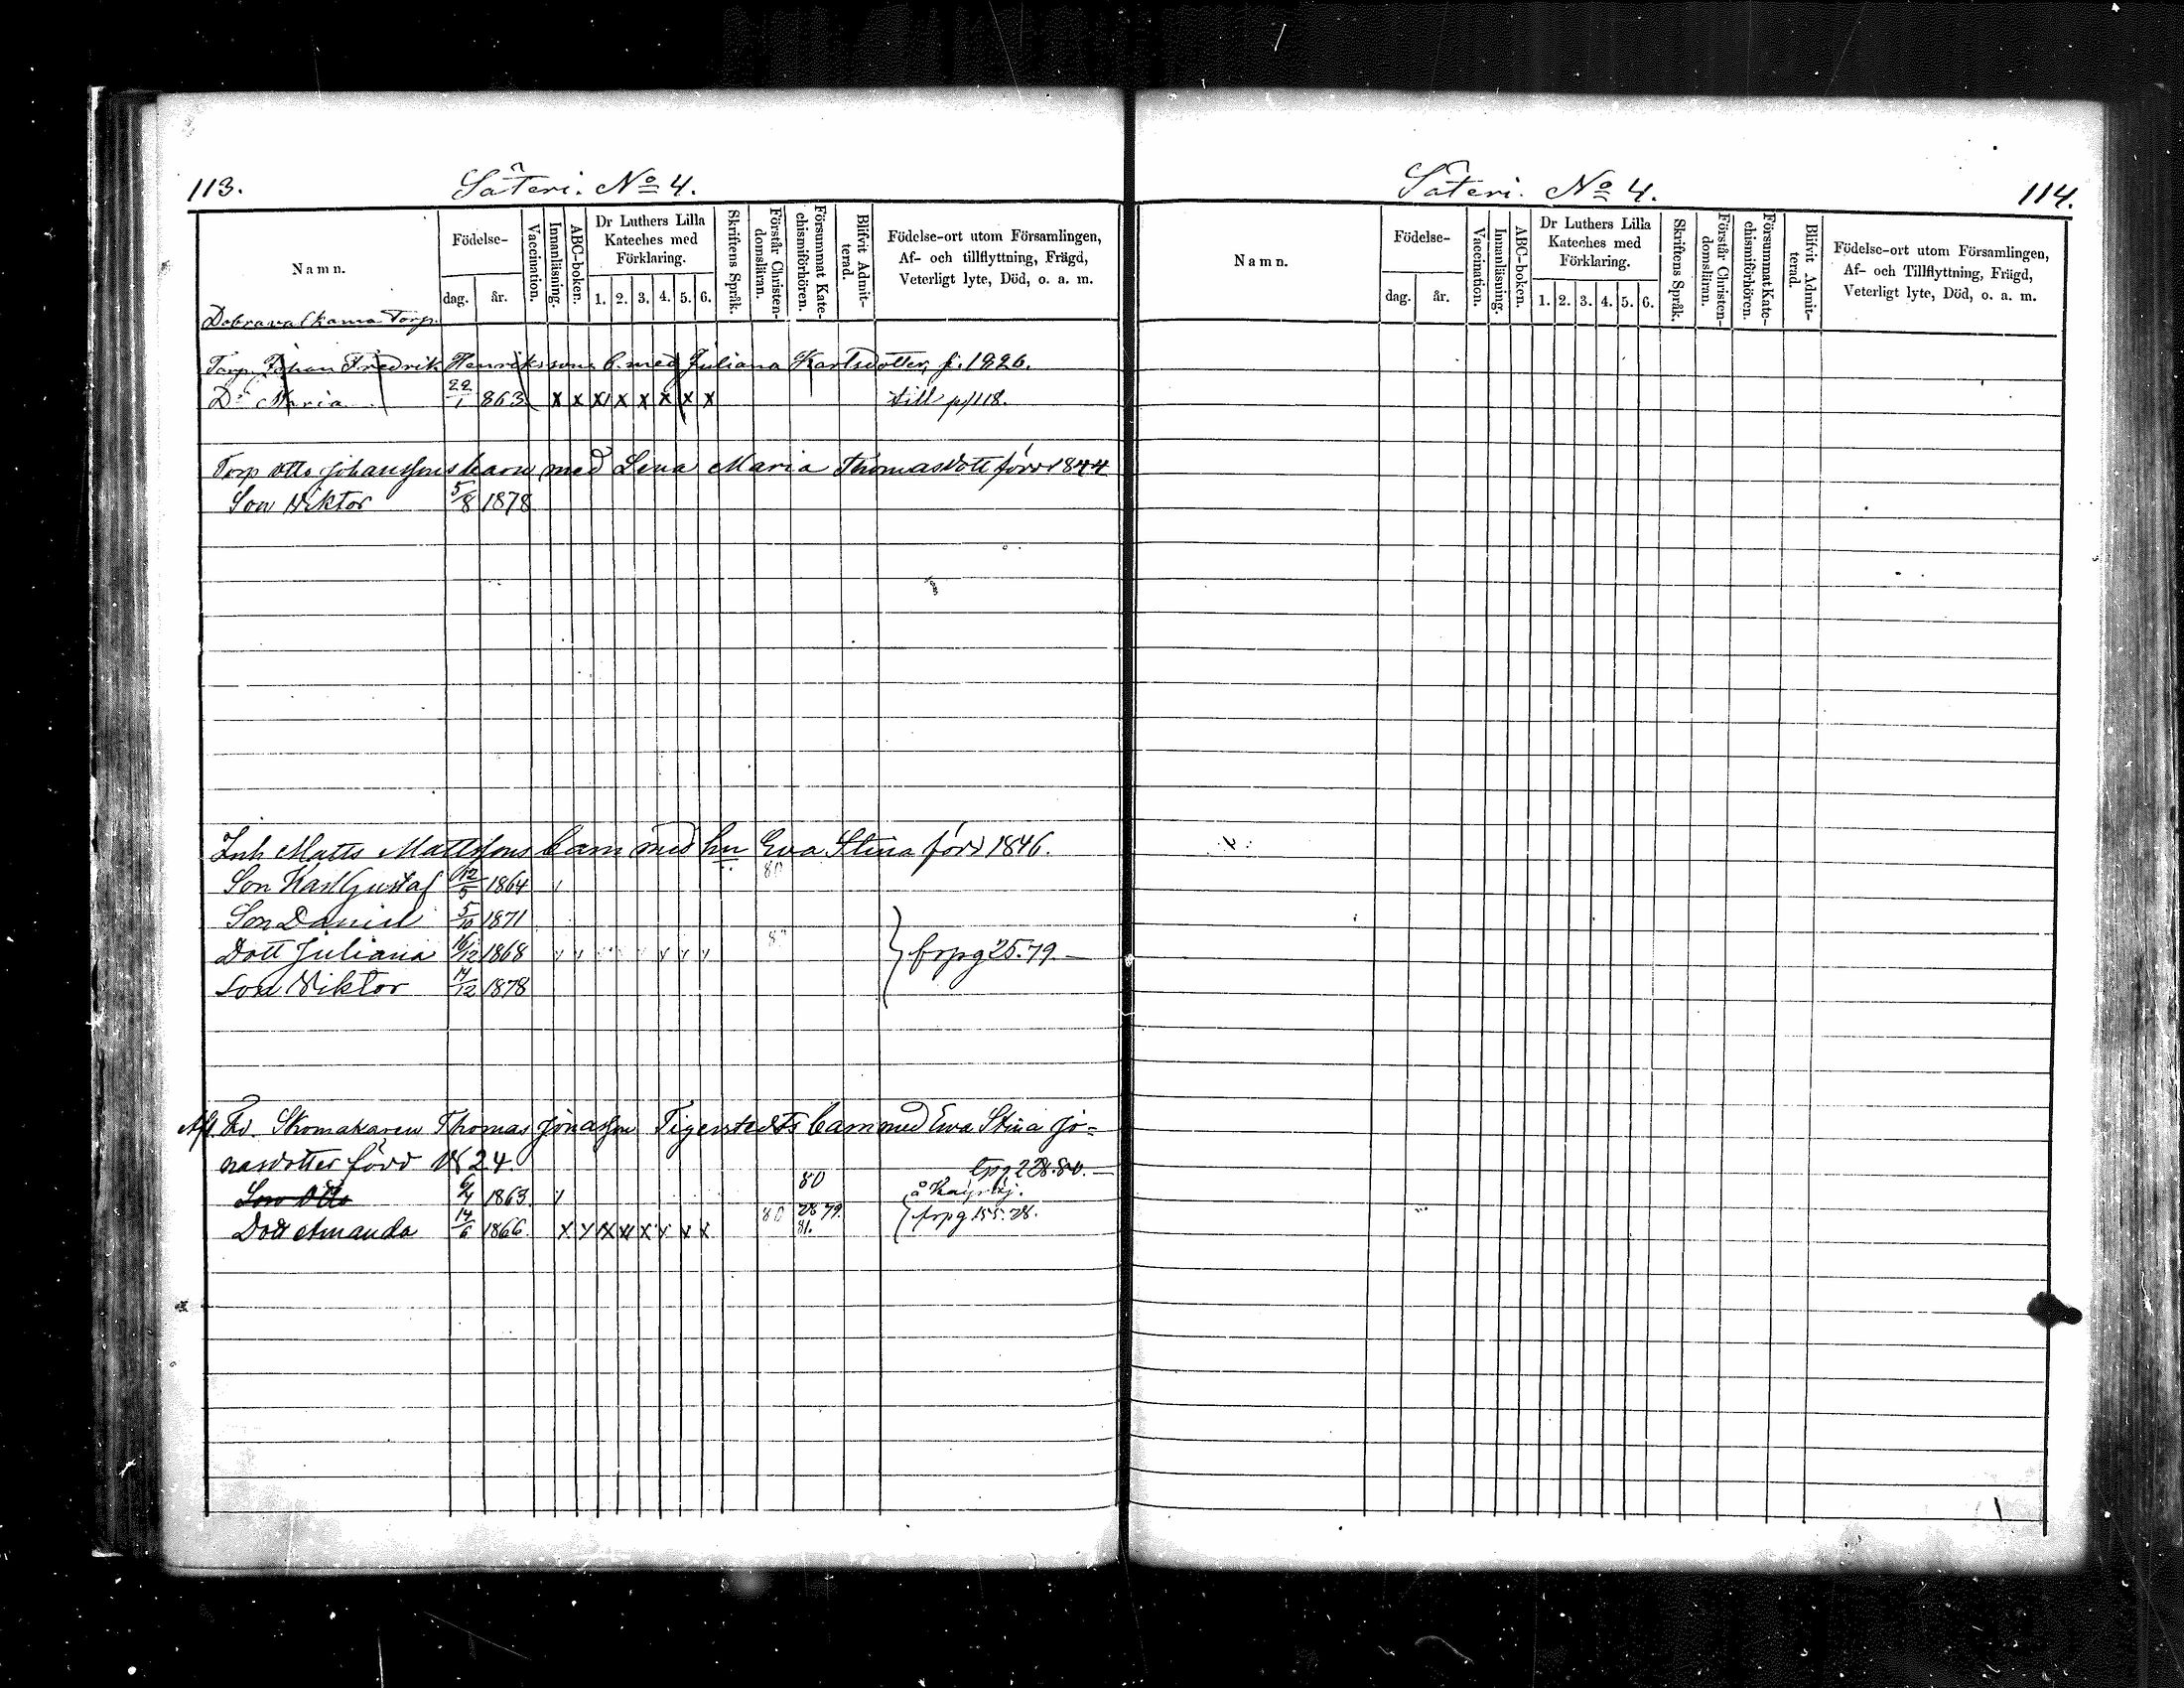 113.
Säteri. No 4.
Namn.
Födelse-
dag.
år.
Vaccination.
Innanläsning.
ABC-boken.
Dr Luthers Lilla
Kateches med
Förklaring.
1. 2. 3. 4. 5. 6.
Skriftens Språk.
Förstår Christen-
domsläran.
Försummat Kate-
chismiförhören.
Blifvit Admit-
terad.
Födelse-ort utom Församlingen,
Af- och tillflyttning, Frägd,
Veterligt lyte, Död, o. a. m.
Torp.
Torp. Johan Fredrik Henrikssons b. med Juliana Karlsdotter, f. 1826.
Dr Maria 22/1 863 x x x x x x x x till p 118.
Torp Otto Johanssons barn med Lena Maria Thomasdott född 1844
Son Viktor 5/8 1878
Inh Matts Mattssons barn med hu Eva Stina född 1846.
Son Karl Gustaf 12/5 1864 80
Son Daniel 5/10 1871
Dott Juliana 16/12 1868 frpg 25.79.
Son Viktor 14/12 1878
Skomakaren Thomas Jonasson Tigerstedts barn med Eva Stina Jo=
nasdotter född 1824.
Son Otto 6/4 1863 80 tpg 228.80.
Dott Amanda 14/6 1866. x x x x x x x x 80 28 79. 81. frpg 155.28.
Säteri. No 4.
114.
Namn.
Födelse-
dag.
år.
Vaccination.
Innanläsning.
ABC-boken.
Dr Luthers Lilla
Kateches med
Förklaring.
1. 2. 3. 4. 5. 6.
Skriftens Språk.
Förstår Christen-
domsläran.
Försummat Kate-
chismiförhören.
Blifvit Admit-
terad.
Födelse-ort utom Församlingen,
Af- och Tillflyttning, Frägd,
Veterligt lyte, Död, o. a. m.